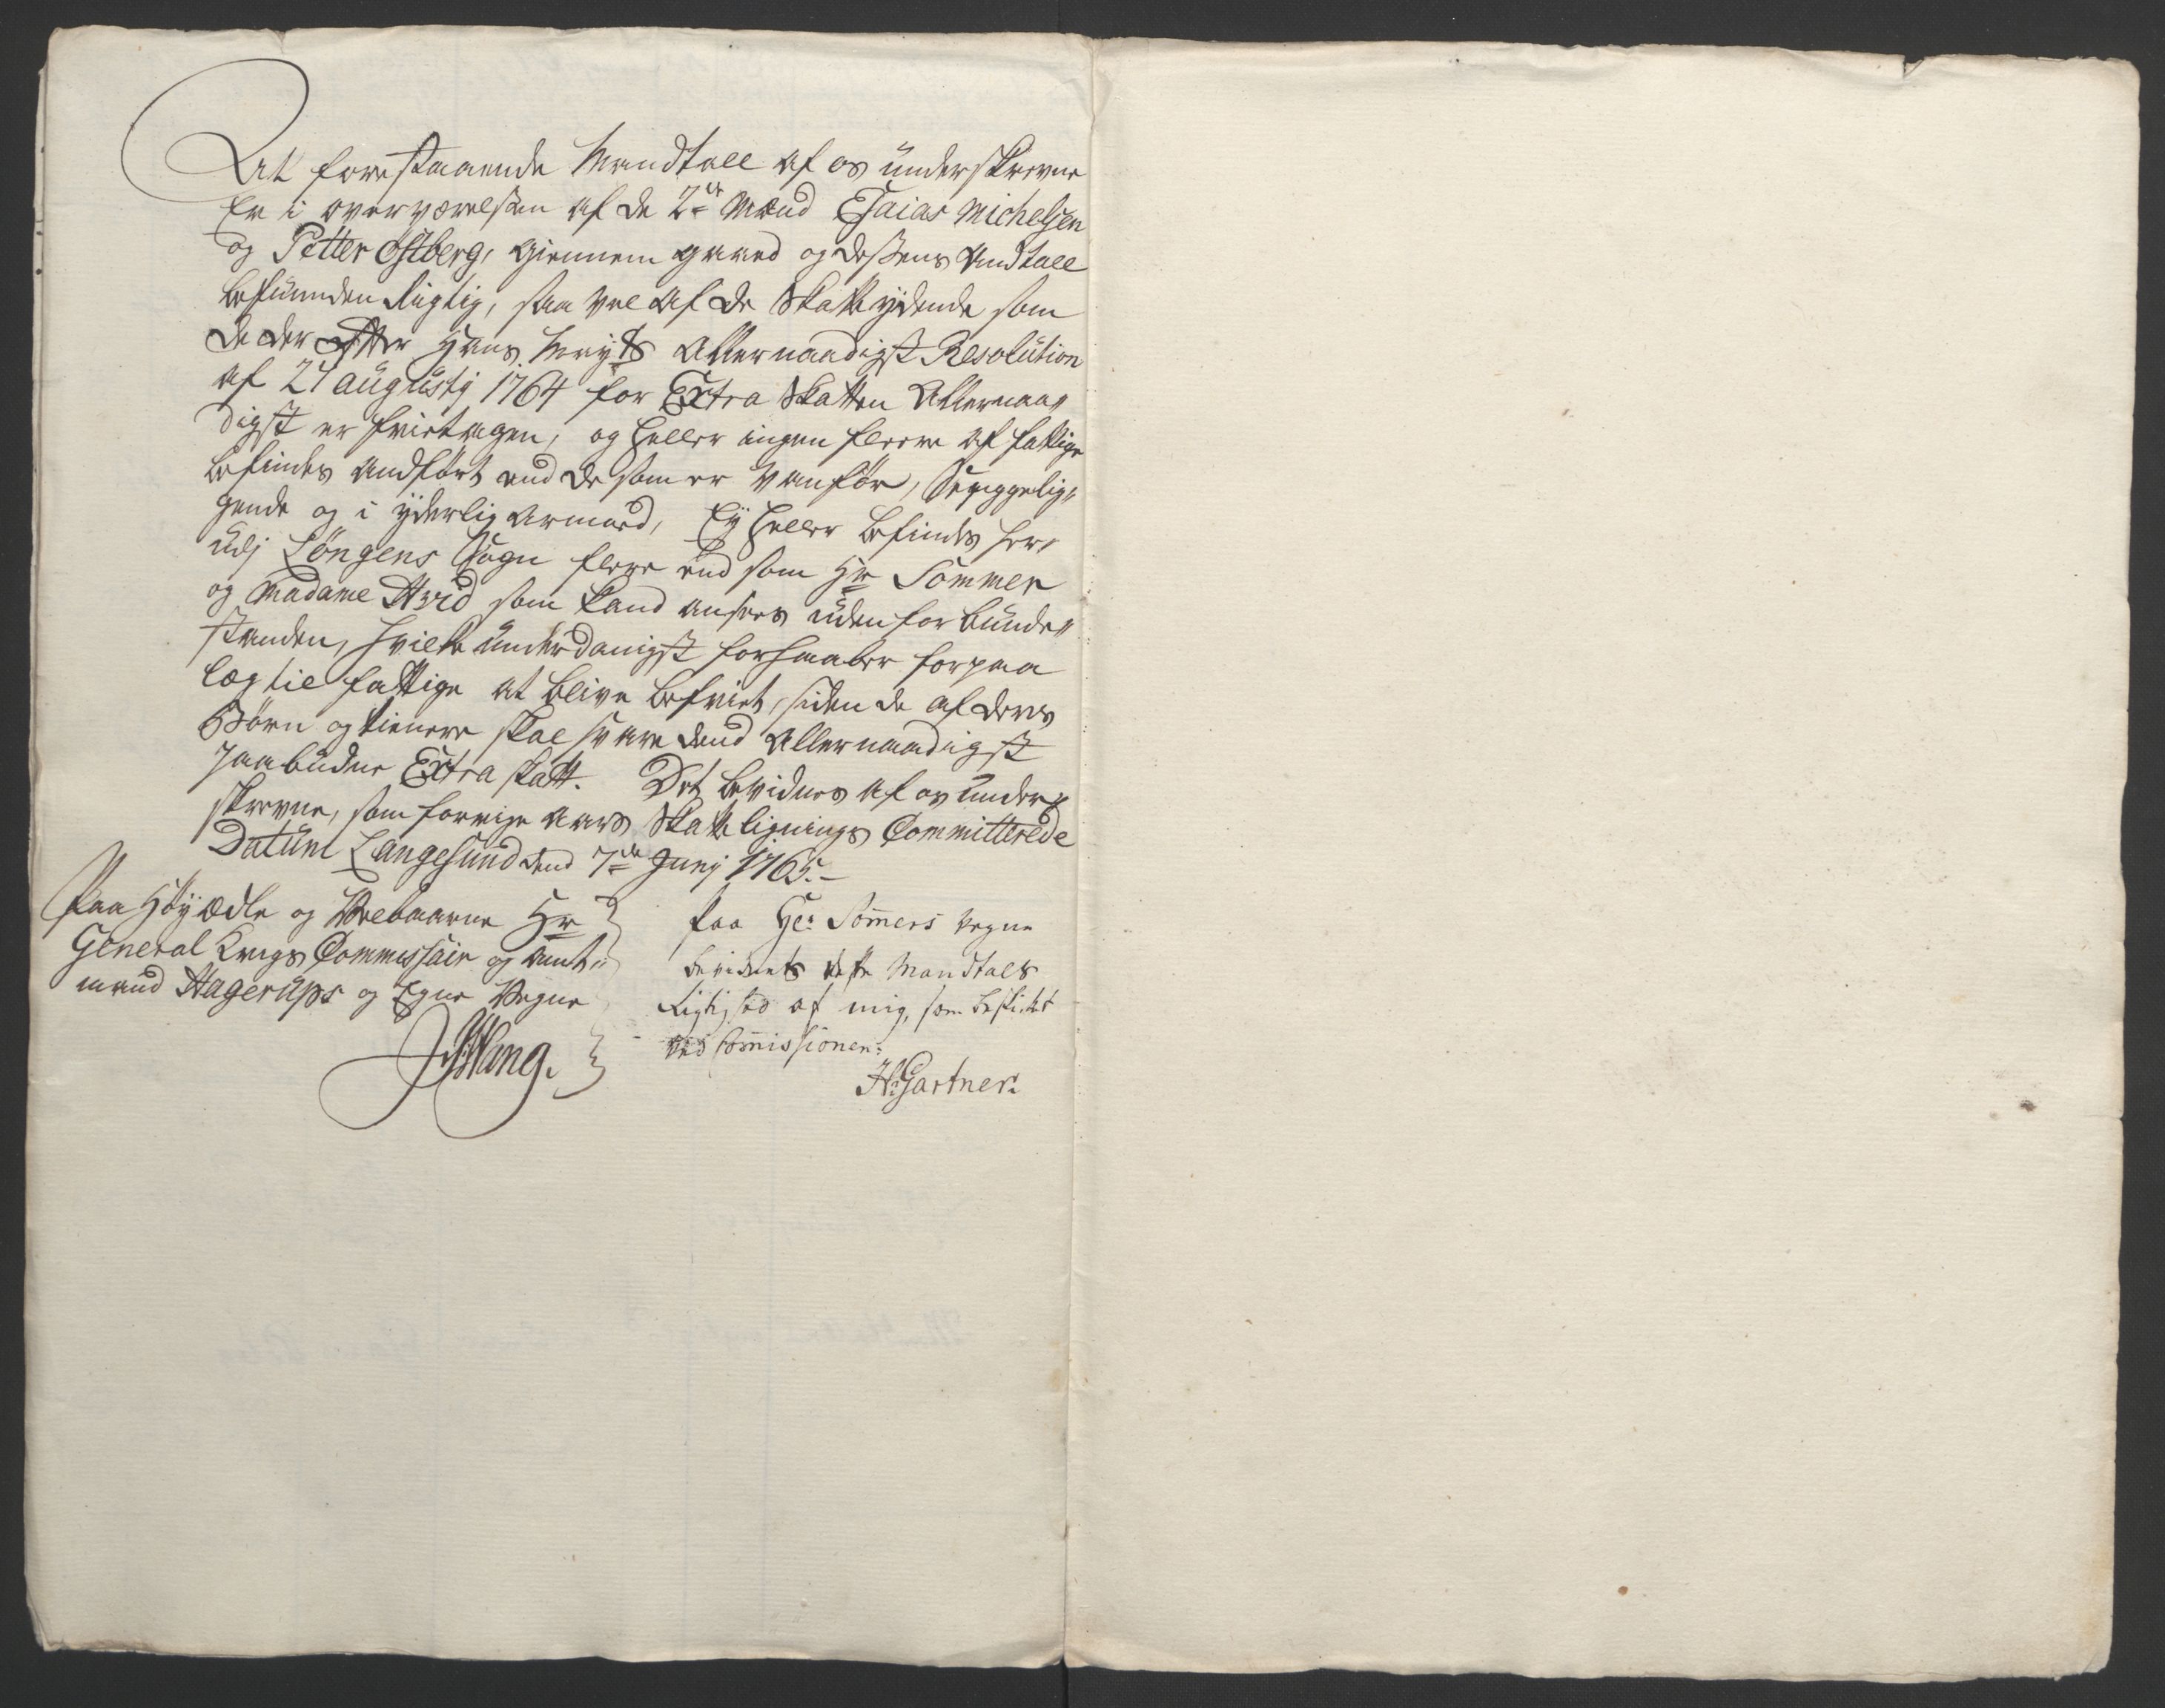 At forestaaende Mandtall af os underskrevne
Er i overværelsen af de 2de Mænd Esaias Michelsen
og Petter Østberg, giennem gaaed og dessens Andtall
befunden Rigtig, saa vel af de Skatteydende som
de der efter Hans Mayts Allernaadigst Resolution
af 27 augustij 1764 for Extra Skatten Allernaa„
digst er frietagen, og heller ingen fleere af fattige
befindes andført end de som er vanfør, Sengelig„
gende og i yderlig armoed, Ey heller befindes her„
udj Løngens Sogn flere end som Hr Sommer
og Madame Hvid som kand ansees uden for bunde„
standen, hvilke underdanigst forhaaber for paa
læg til fattige at blive befriet, siden de af deres
Børn og tienere skal svare dend Allernaadigst
paabudne Extra skatt. Det bevidnes af os under„
skrevne, som forrige aars Skatteligning Committerede
Datum Langesund dend 7de Junj 1765.–
Paa Høyædle og Velbaarne Hr
General Krigs Commissair og amt„
mand Hagerups og Egne Vegne
Wang.
Paa Hr: Sommers vegne
bevidnets dette Mandtals
Rigtighed af mig, som beskikket
ved Commissionen:
H: Gartner: